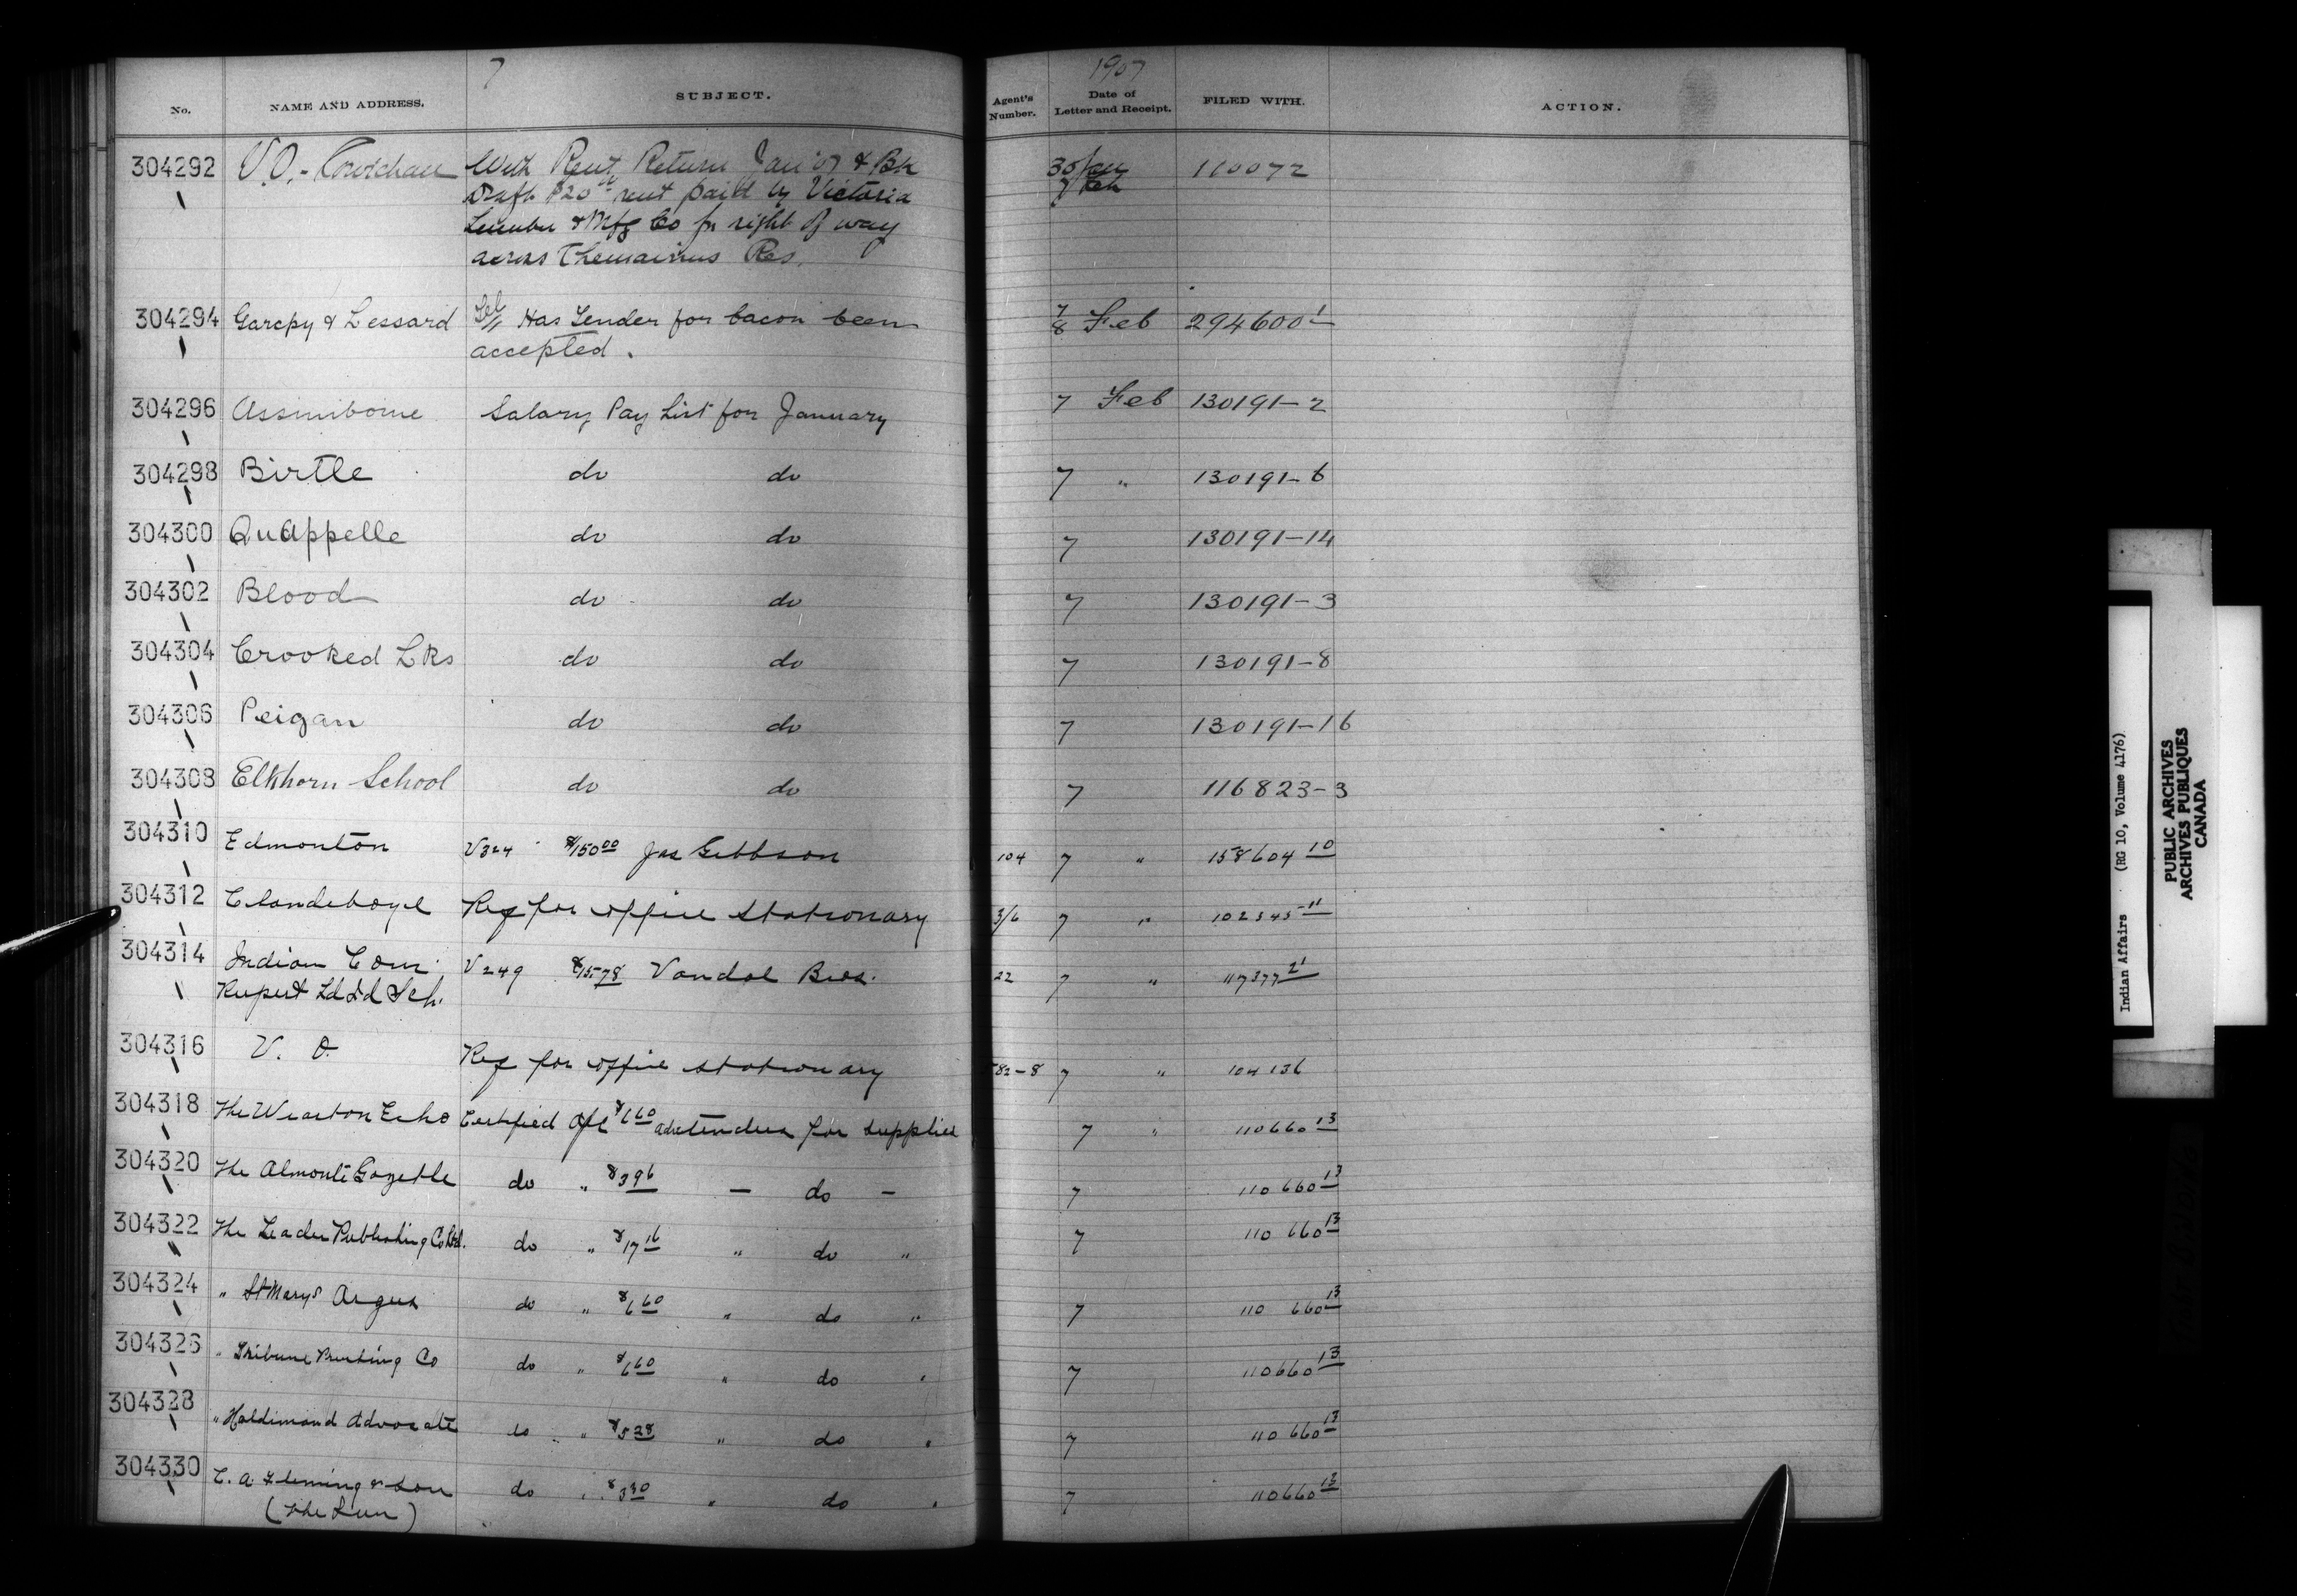 7
1907
No. NAME AND ADDRESS. SUBJECT. Agent's Number. Date of Letter and Receipt. FILED WITH. ACTION.
304292 V.O.- Cowichan With Rent Return Jan '07 & Bk 30 Jan 110072
Draft $20 00 rent paid by Victoria 7 Feb
Lumber & Mfg Co for right of way
across Chemainus Res.
304294 Garepy & Lessard Tel Has Tender for bacon been 7/8 Feb 294600 1
accepted.
304296 Assiniboine Salary Pay List for January 7 Feb 130191-2
304298 Birtle do do 7 " 130191-6
304300 QuAppelle do do 7 130191-14
304302 Blood do do 7 130191-3
304304 Crooked Lks do do 7 130191-8
304306 Peigan do do 7 130191-16
304308 Elkhorn School do do 7 116823-3
304310 Edmonton V324 $150 00 Jas Gibbson 104 7 " 158604 10
304312 Clandeboye Req for office stationary 3/6 7 " 102345-11
304314 Indian Com. V249 $15 78 Vandal Bros. 22 7 " 117377 21
Rupert Ld Id Sch.
304316 V. O. Req for office stationary 82-8 7 " 104136
304318 The Wiarton Echo Certified a/c $6 60 adv tenders for supplies 7 " 110660 13
304320 The Almonte Gazette do " $3 96 - do - 7 110660 13
304322 The Leader Publishing Co Ltd. do " $17 16 " do " 7 110660 13
304324 " St Marys Argus do " $6 60 " do " 7 110660 13
304326 " Tribune Printing Co do " $6 60 " do " 7 110660 13
304328 " Haldimand Advocate do " $5 28 " do " 7 110660 13
304330 C. A. Fleming & Son do " $3 30 " do " 7 110660 13
(The Sun)
Indian Affairs (RG 10, Volume 4176)
PUBLIC ARCHIVES
ARCHIVES PUBLIQUES
CANADA